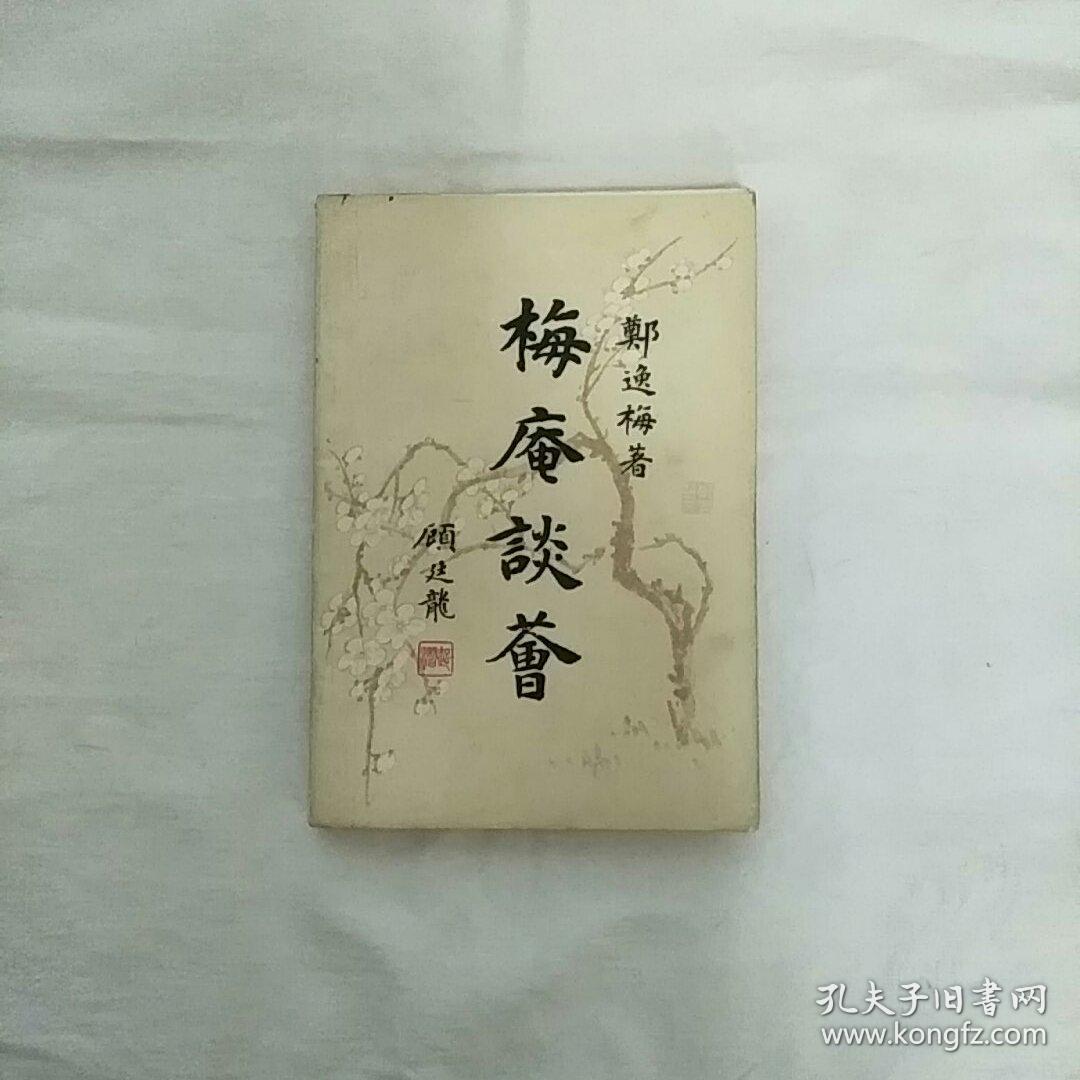 鄭逸梅著
梅庵談薈
顧廷龍
孔夫子旧書网
www.kongfz.com